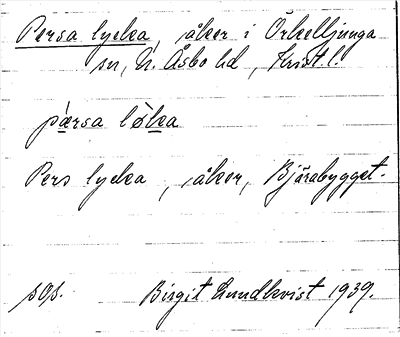 Persa lycka, åker i Örkelljunga
sn, N. Åsbo hd, Krist. l.
pæ̀rsa lø̀ka
Pers lycka, åker, Bjärabygget.
sgs. Birgit Lundkvist 1939.